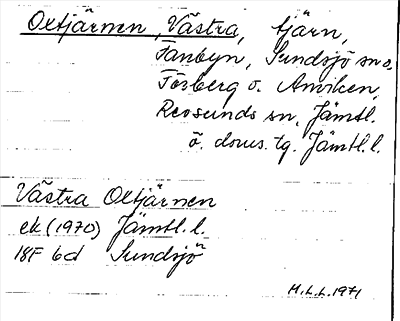 Oxtjärnen, Västra, tjärn,
Fanbyn, Sundsjö sn o.
Fösberg o. Anviken,
Revsunds sn, Jämtl.
ö. doms. tg. Jämtl. l.
Västra Oxtjärnen
ek (1970) Jämtl. l.
18F 6d Sundsjö
H.L.L. 1971